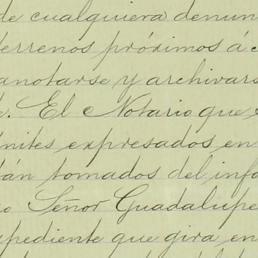 de cualquiera denun
terrenos próximos á
anotarse y archivars
. El Notario que
mites expresados en
tán tomados del info
o Señor Guadalupe
pediente que gira en